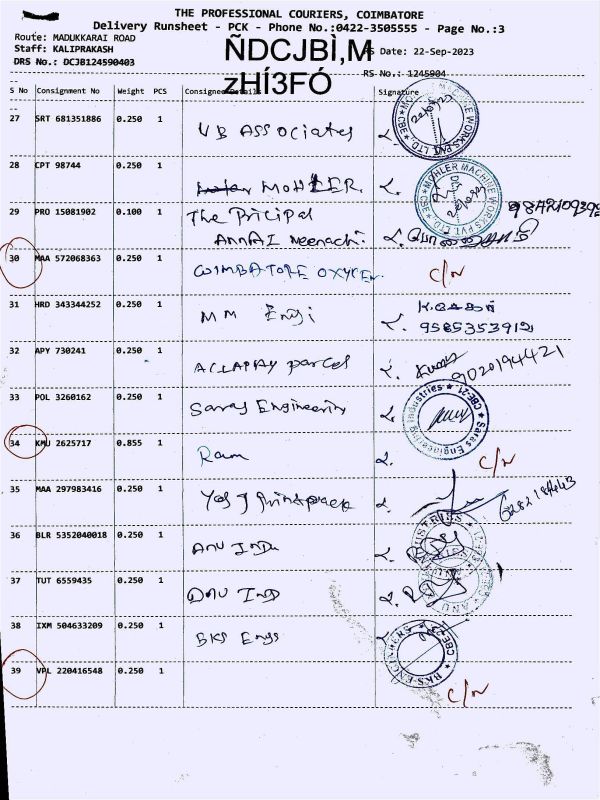 THE PROFESSIONAL COURIERS, COIMBATORE
Delivery Runsheet - PCK - Phone No.:0422-3505555 - Page No.:3
Route: MADUKKARAI ROAD
Staff: KALIPRAKASH
ÑDCJBÌ,M
RS Date: 22-Sep-2023
DRS No.: DCJB124590403
zHÍ3FÓ
RS No.: 1245904
S No Consignment No Weight PCS Consignee Details Signature
27 SRT 681351886 0.250 1 VB ASSociates
MOHLER MACHINE WORKS PVT. LTD. CBE
28 CPT 98744 0.250 1 MOHLER.
MOHLER MACHINE WORKS PVT. LTD. CBE
29 PRO 15081902 0.100 1 The Pricipal
ANNAI Meenachi.
30 MAA 572068363 0.250 1 COIMBATORE OXYGEN. C/N
31 HRD 343344252 0.250 1 MM Engi
9585353912
32 APY 730241 0.250 1 ALLAPPAY parcel Kumar
9020194421
33 POL 3260162 0.250 1 Saras Engineering
Saras Engineering Industries CBE-21
34 KMU 2625717 0.855 1 Ram C/N
35 MAA 297983416 0.250 1
36 BLR 5352040018 0.250 1 ANU Indu
37 TUT 6559435 0.250 1 ANU Ind
38 IXM 504633209 0.250 1 BKS Engs
BKS ENGINEERS CBE-23
39 VPL 220416548 0.250 1 C/N